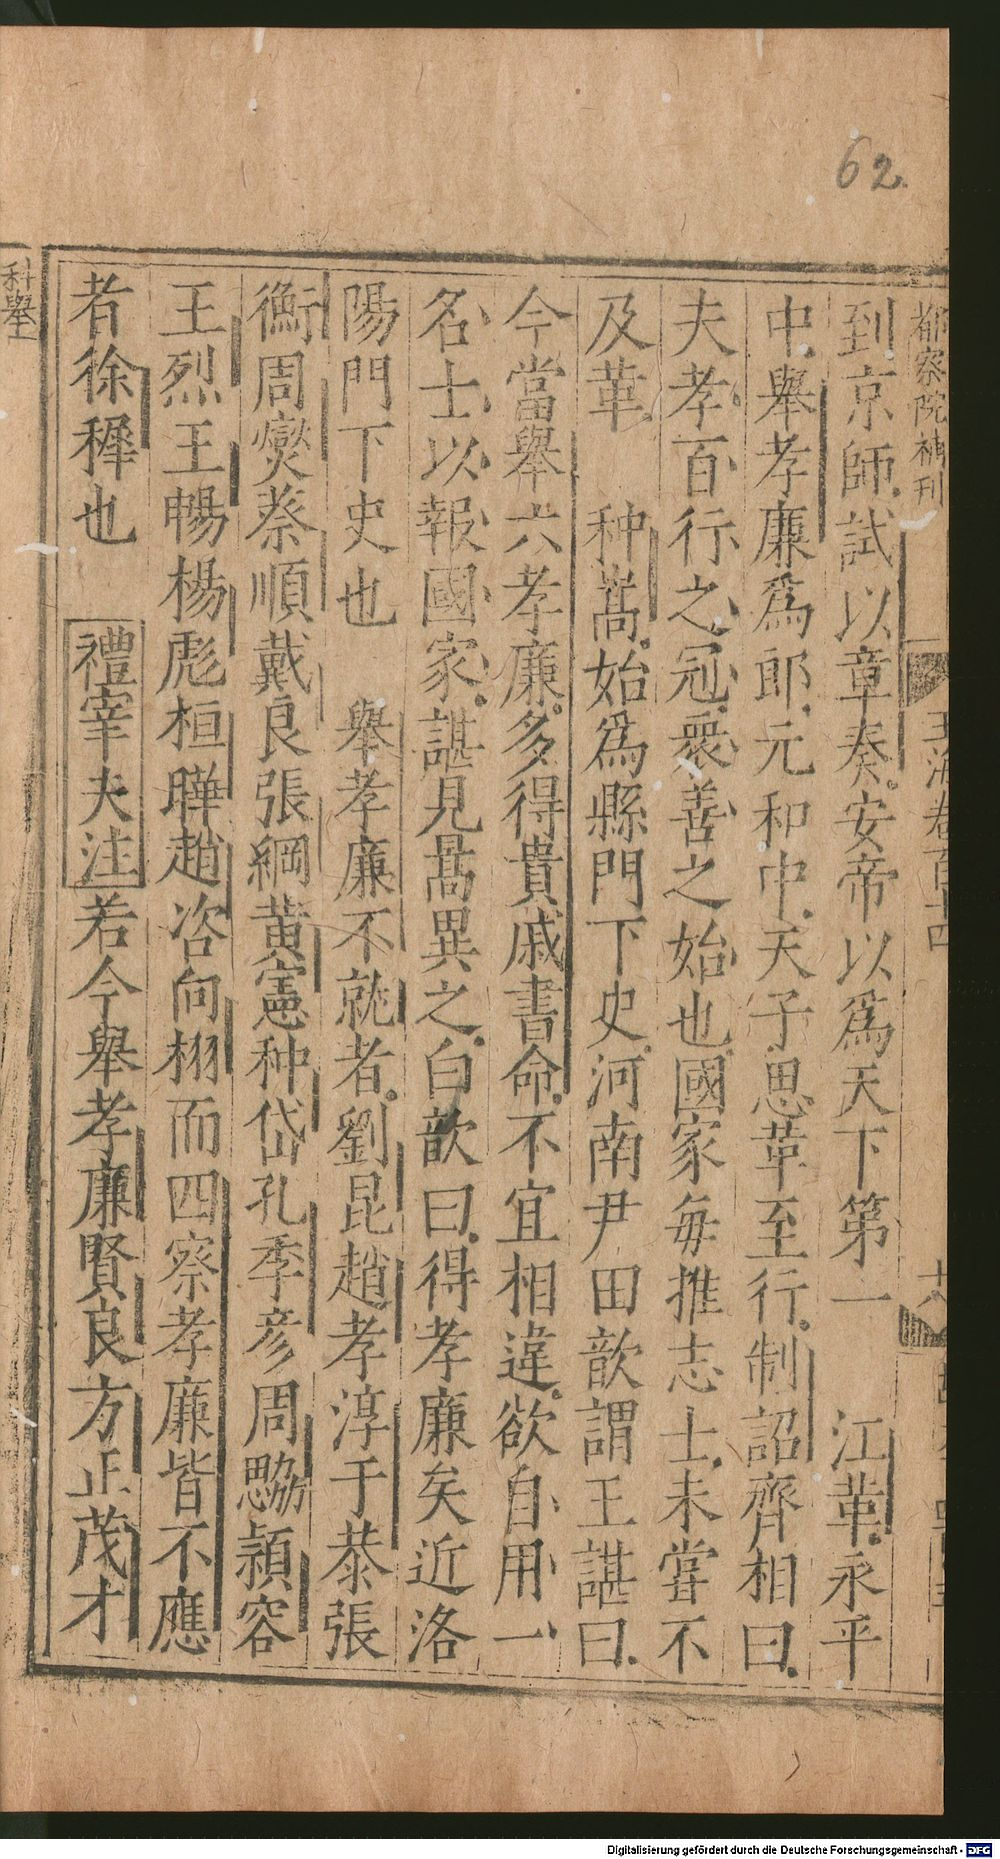 62
都察院補刊
玉海卷百十四
到京師試以章奏安帝以爲天下第一　江革永平
中舉孝廉爲郎元和中天子思革至行制詔齊相曰
夫孝百行之冠衆善之始也國家每推志士未嘗不
及革　种暠始爲縣門下史河南尹田歆謂王諶曰
今當舉六孝廉多得貴戚書命不宜相違欲自用一
名士以報國家諶見暠異之白歆曰得孝廉矣近洛
陽門下史也　舉孝廉不就者劉昆趙孝淳于恭張
衡周燮蔡順戴良張綱黃憲种岱孔季彥周勰潁容
王烈王暢楊彪桓曄趙咨向栩而四察孝廉皆不應
者徐穉也　禮宰夫注若今舉孝廉賢良方正茂才
科舉
Digitalisierung gefördert durch die Deutsche Forschungsgemeinschaft - DFG